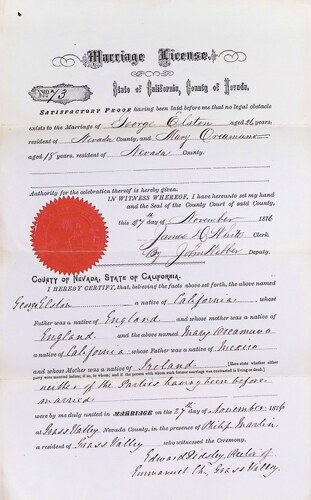 Marriage License.
No. 73
State of California, County of Nevada.
SATISFACTORY PROOF having been laid before me that no legal obstacle
exists to the Marriage of George Elston aged 26 years,
resident of Nevada County, and Mary Occamuna
aged 18 years, resident of Nevada County.
Authority for the celebration thereof is hereby given.
IN WITNESS WHEREOF, I have hereunto set my hand
and the Seal of the County Court of said County,
this 27th November 1876
James D. White Clerk
By John Webber Deputy.
COUNTY OF NEVADA, STATE OF CALIFORNIA.
I HEREBY CERTIFY, that, believing the facts above set forth, the above named
George Elston a native of California whose
Father was a native of England and whose mother was a native
of England. and the above named Mary Occamuna
a native of California whose Father was a native of Mexico
and whose Mother was a native of Ireland (Here state whether
party were married before; if so, to whom; and if the person with whom their former marriage was contracted is living or dead.)
neither of the Parties having been before
married
were by me duly united in MARRIAGE on the 27th day of November 1876
at Grass Valley, Nevada County, in the presence of Philip Martin
a resident of Grass Valley who witnessed the Ceremony.
Edward Rector of
Emmanuel Ch, Grass Valley.